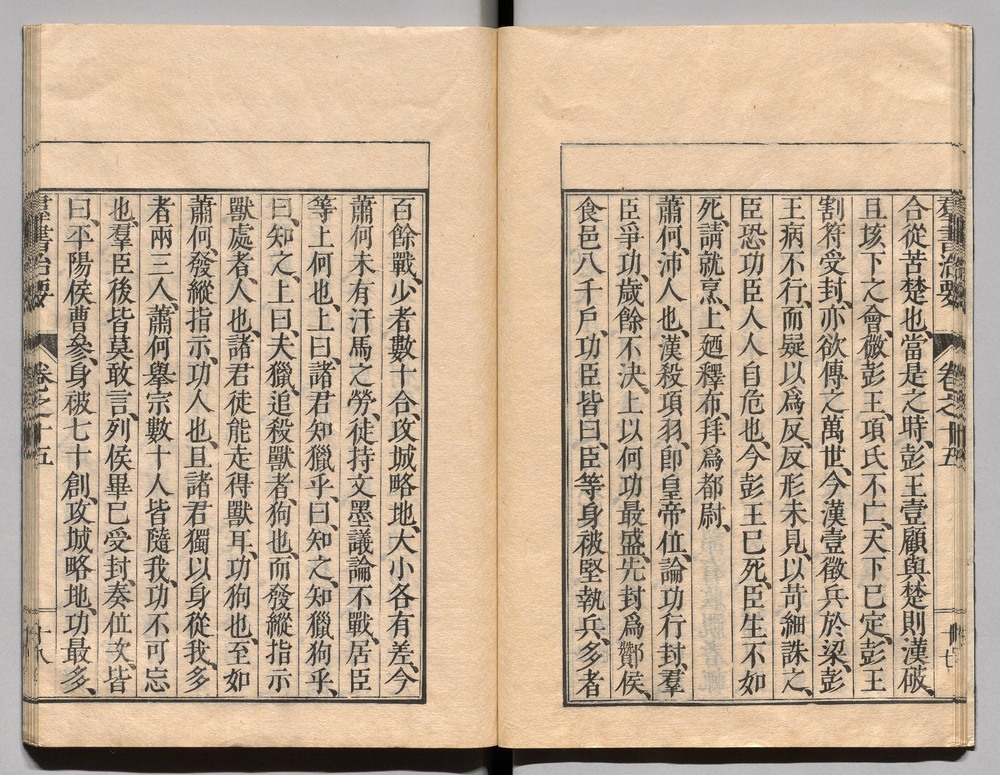 合從苦楚也、當是之時、彭王壹顧、與楚則漢破、
且垓下之會、微彭王、項氏不亡、天下已定、彭王
割符受封、亦欲傳之萬世、今漢壹徵兵於梁、彭
王病不行、而疑以爲反、反形未見、以苛細誅之、
臣恐功臣人人自危也、今彭王已死、臣生不如
死、請就烹、上廼釋布、拜爲都尉、
蕭何、沛人也、漢殺項羽、卽皇帝位、論功行封、羣
臣爭功、歲餘不決、上以何功最盛、先封爲酇侯、
食邑八千戶、功臣皆曰、臣等身被堅執兵、多者
百餘戰、少者數十合、攻城略地、大小各有差、今
蕭何未有汗馬之勞、徒持文墨議論不戰、居臣
等上何也、上曰、諸君知獵乎、曰、知之、知獵狗乎、
曰、知之、上曰、夫獵、追殺獸者、狗也、而發縱指示
獸處者、人也、諸君徒能走得獸耳、功狗也、至如
蕭何、發縱指示、功人也、且諸君獨以身從我、多
者兩三人、蕭何舉宗數十人皆隨我、功不可忘
也、羣臣後皆莫敢言、列侯畢已受封、奏位次、皆
曰、平陽侯曹參、身被七十創、攻城略地、功最多、
羣書治要
卷之十五
十八